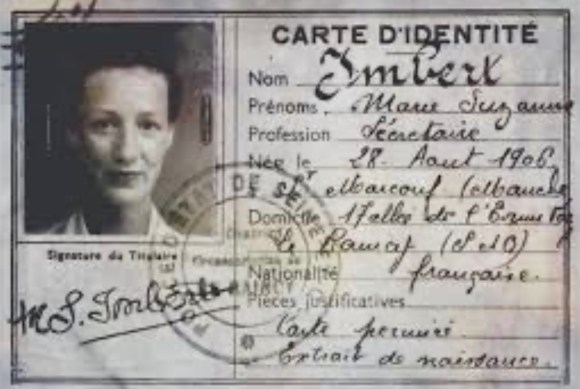 CARTE D'IDENTITÉ
Nom Imbert
Prénoms. Marie Suzanne
Profession Sécretaire
Née le 28. Aout 1906.
St Marcouf (Manche)
Domicile 17 allée de l'Ermitage
le Raincy (S & O)
Nationalité française.
Pièces justificatives
Carte périmée
Extrait de naissance.
Signature du Titulaire
M. S. Imbert